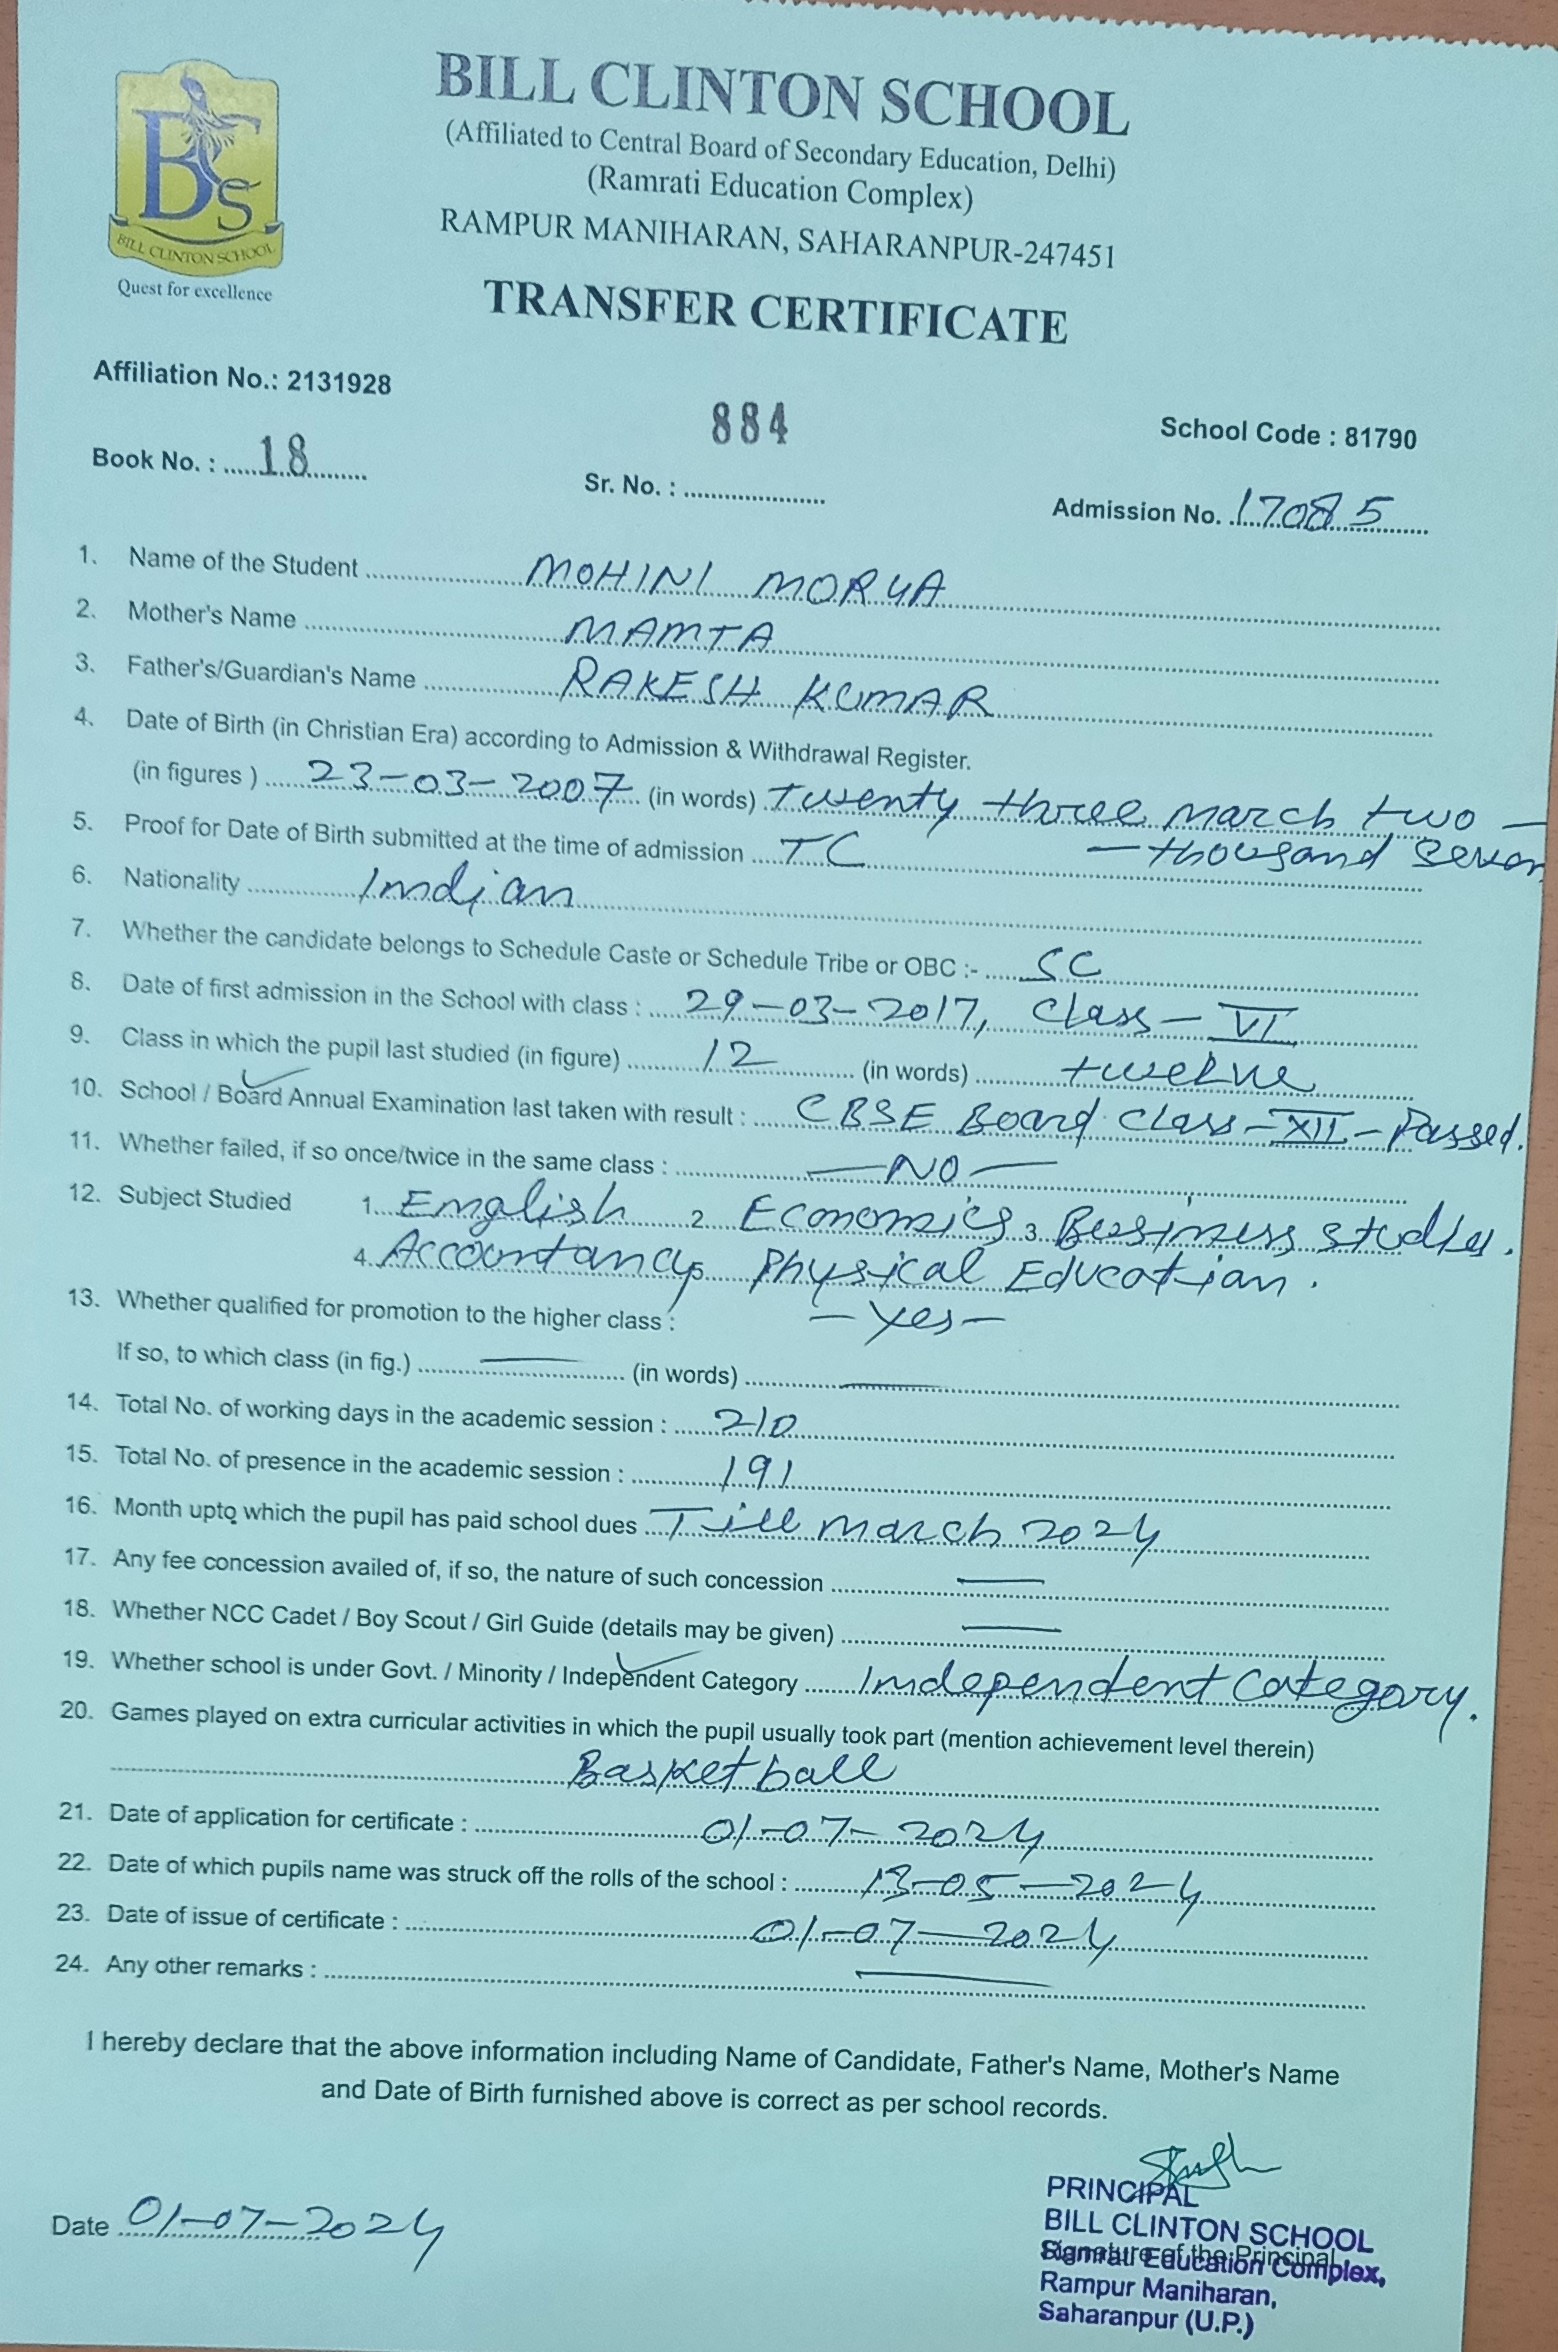 BILL CLINTON SCHOOL
(Affiliated to Central Board of Secondary Education, Delhi)
(Ramrati Education Complex)
RAMPUR MANIHARAN, SAHARANPUR-247451
BCS
BILL CLINTON SCHOOL
Quest for excellence
TRANSFER CERTIFICATE
Affiliation No.: 2131928
884
School Code : 81790
Book No. : 18
Sr. No. :
Admission No. 17085
1. Name of the Student MOHINI MORYA
2. Mother's Name MAMTA
3. Father's/Guardian's Name RAKESH KUMAR
4. Date of Birth (in Christian Era) according to Admission & Withdrawal Register.
(in figures ) 23-03-2007 (in words) Twenty three march two -
- thousand seven
5. Proof for Date of Birth submitted at the time of admission TC
6. Nationality Indian
7. Whether the candidate belongs to Schedule Caste or Schedule Tribe or OBC :- SC
8. Date of first admission in the School with class : 29-03-2017, Class - VI
9. Class in which the pupil last studied (in figure) 12 (in words) twelve
10. School / Board Annual Examination last taken with result : CBSE Board Class - XII - Passed.
11. Whether failed, if so once/twice in the same class : - NO -
12. Subject Studied 1. English 2. Economics 3. Business studies.
4. Accountancy 5. Physical Education.
13. Whether qualified for promotion to the higher class : - Yes -
If so, to which class (in fig.) — (in words) —
14. Total No. of working days in the academic session : 210
15. Total No. of presence in the academic session : 191
16. Month upto which the pupil has paid school dues Till march 2024
17. Any fee concession availed of, if so, the nature of such concession —
18. Whether NCC Cadet / Boy Scout / Girl Guide (details may be given) —
19. Whether school is under Govt. / Minority / Independent Category Independent Category.
20. Games played on extra curricular activities in which the pupil usually took part (mention achievement level therein)
Basketball
21. Date of application for certificate : 01-07-2024
22. Date of which pupils name was struck off the rolls of the school : 13-05-2024
23. Date of issue of certificate : 01-07-2024
24. Any other remarks : —
I hereby declare that the above information including Name of Candidate, Father's Name, Mother's Name
and Date of Birth furnished above is correct as per school records.
Date 01-07-2024
PRINCIPAL
BILL CLINTON SCHOOL
Signature of the Principal
Ramrati Education Complex,
Rampur Maniharan,
Saharanpur (U.P.)